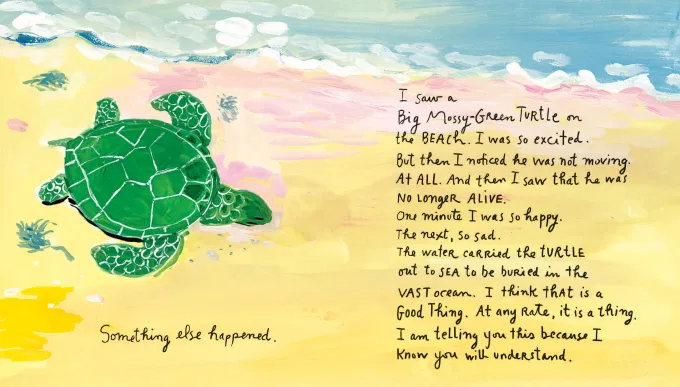 Something else happened.
I saw a
Big Mossy-Green TURTLE on
the BEACH. I was so excited.
But then I noticed he was not moving.
AT ALL. And then I saw that he was
NO LONGER ALIVE.
One minute I was so happy.
The next, so sad.
The water carried the TURTLE
out to SEA to be buried in the
VAST ocean. I think that is a
Good Thing. At any Rate, it is a thing.
I am telling you this because I
Know you will understand.